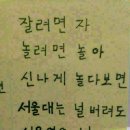 잘려면 자
놀려면 놀아
신나게 놀다보면
서울대는 널 버려도